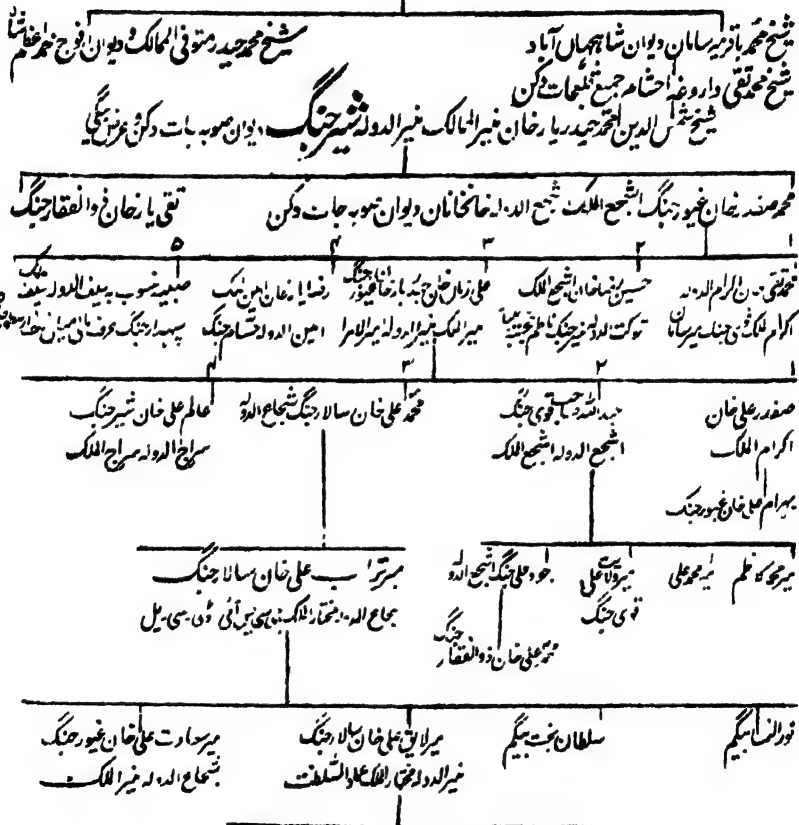 شیخ محمد باقر میر سامان دیوان شاہجہاں آباد
شیخ محمد حیدر متوفی الممالک و دیوان افواج محمد اعظم شاہ
شیخ محمد تقی داروغہ احشام جمیع قلعجات دکن
شیخ شمس الدین محمد حیدر یار خان منیر الممالک منیر الدولہ شیر جنگ دیوان صوبہ جات دکن و عرض بیگی
محمد صفدر خان غیور جنگ اشجع الملک شجع الدولہ خانخانان دیوان صوبہ جات دکن
تقی یار خان ذوالفقار جنگ
۱ ۲ ۳ ۴ ۵
محمد تقی خان اکرام الدولہ
اکرام الملک قوی جنگ میر سامان
حسین رضا خان اشجع الملک
شوکت الدولہ جنگ ناظم
علی زمان خان حیدر یار خان غیور جنگ
میر الملک منیر الدولہ امیر الامرا
رضا یار خان امین الملک
امین الدولہ حسام جنگ
صبیہ منسوب بہ سیف الدولہ سیف الملک
۱ ۲ ۳ ۴
صفدر علی خان
اکرام الملک
بہرام علی خان غیور جنگ
عبد اللہ صاحب قوی جنگ
اشجع الدولہ اشجع الملک
محمد علی خان سالار جنگ شجاع الدولہ
عالم علی خان شیر جنگ
سراج الدولہ سراج الملک
میر محمد کاظم
میر محمد علی
میر ولایت علی
قوی جنگ
جواد علی جنگ اشجع الدولہ
محمد علی خان ذوالفقار جنگ
میر تراب علی خان سالار جنگ
شجاع الدولہ مختار الملک جی سی ایس آئی ڈی سی ایل
نور النسا بیگم
سلطان بخت بیگم
میر لائق علی خان سالار جنگ
منیر الدولہ مختار الملک عماد السلطنت
میر سعادت علی خان غیور جنگ
شجاع الدولہ منیر الملک